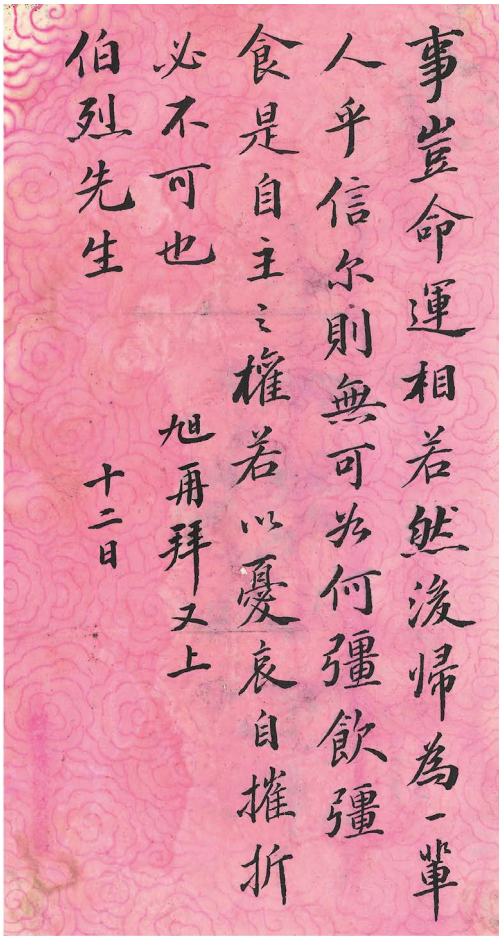 事豈命運相若然後帰為一輩
人乎信尔則無可如何彊飲彊
食是自主之權若以憂哀自摧折
必不可也
旭再拜又上
伯烈先生
十二日